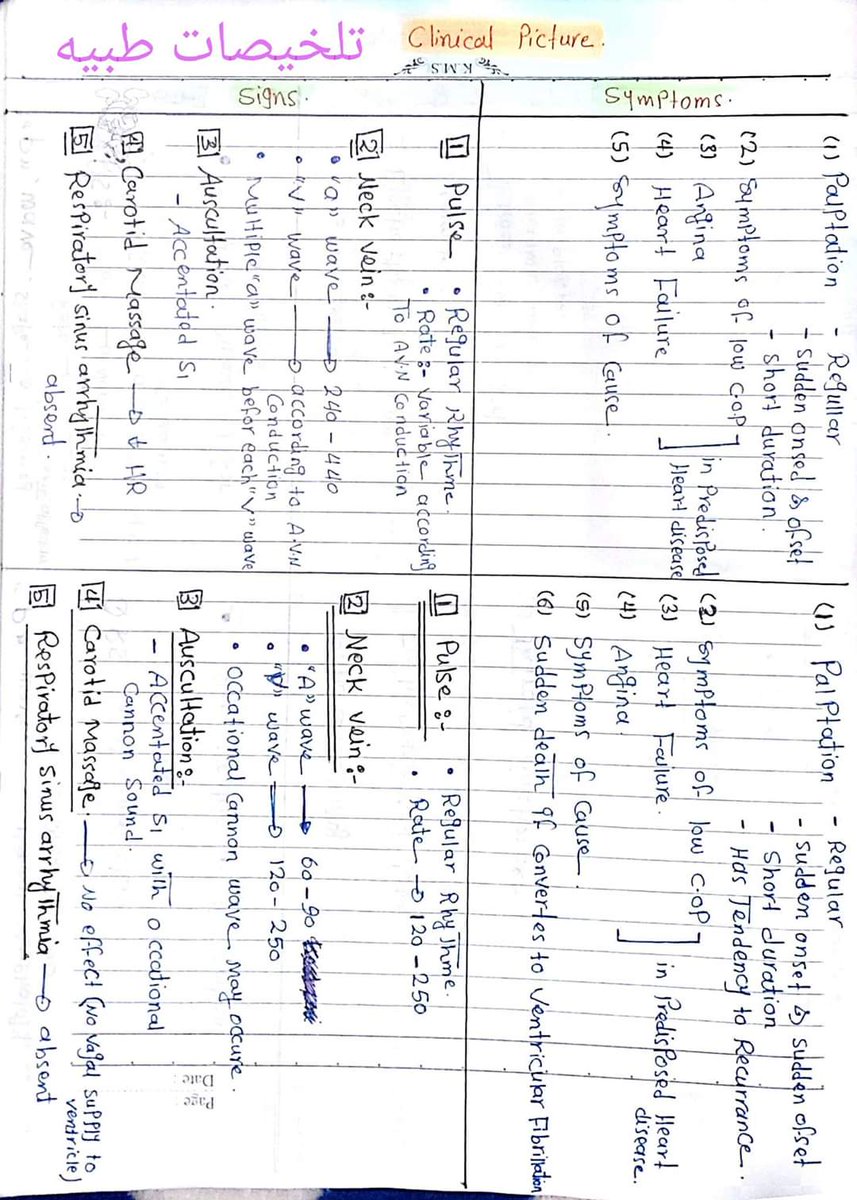 تلخيصات طبيه
Clinical Picture.
K.M.S
Symptoms.
(1) Palptation - Regullar
- Sudden onsed & ofset
- Short duration.
(2) Symptoms of low c.o.p
(3) Angina
(4) Heart Failure
in Predisposed
Heart disease
(5) Symptoms of Cause.
(1) Palptation - Regular
- Sudden onset & sudden ofset
- Short duration
- Has Tendency to Recurrance.
(2) Symptoms of low c.o.p
(3) Heart Failure.
(4) Angina
in Predisposed Heart
disease.
(5) Symptoms of Cause.
(6) Sudden death if Convertes to Ventricular Fibrillation
Signs.
1 Pulse • Regular Rhythme.
• Rate:- Variable according
To A.V.N Conduction
2 Neck vein:-
• "a" wave → 240 - 440
• "V" wave → according to A.V.N
Conduction
• Multiple "a" wave befor each "V" wave
3 Auscultation.
- Accentated S1
4 Carotid Massage → ↓ HR
5 Respiratory sinus arrhythmia →
absent.
1 Pulse:- • Regular Rhythme.
• Rate → 120 - 250
2 Neck vein:-
• "A" wave → 60 - 90
• "V" wave → 120 - 250
• Occational Cannon wave may occure.
3 Auscultation:-
- Accentated S1 with occational
Cannon Sound.
4 Carotid Massage. → No effect (No Vagal supply to
ventricle)
5 Respiratory Sinus arrhythmia → absent
Page:
Date: